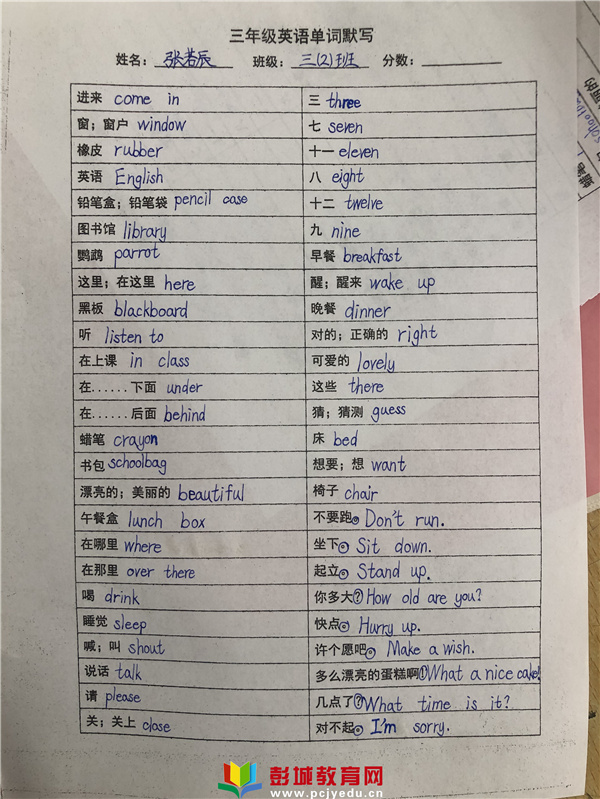 三年级英语单词默写
姓名：张若辰 班级：三(2)班 分数：
进来 come in 三 three
窗；窗户 window 七 seven
橡皮 rubber 十一 eleven
英语 English 八 eight
铅笔盒；铅笔袋 pencil case 十二 twelve
图书馆 library 九 nine
鹦鹉 parrot 早餐 breakfast
这里；在这里 here 醒；醒来 wake up
黑板 blackboard 晚餐 dinner
听 listen to 对的；正确的 right
在上课 in class 可爱的 lovely
在......下面 under 这些 there
在......后面 behind 猜；猜测 guess
蜡笔 crayon 床 bed
书包 schoolbag 想要；想 want
漂亮的；美丽的 beautiful 椅子 chair
午餐盒 lunch box 不要跑。 Don't run.
在哪里 where 坐下。 Sit down.
在那里 over there 起立。 Stand up.
喝 drink 你多大？ How old are you?
睡觉 sleep 快点。 Hurry up.
喊；叫 shout 许个愿吧。 Make a wish.
说话 talk 多么漂亮的蛋糕啊！ What a nice cake!
请 please 几点了？ What time is it?
关；关上 close 对不起。 I'm sorry.
彭城教育网
www.pcjyedu.cn